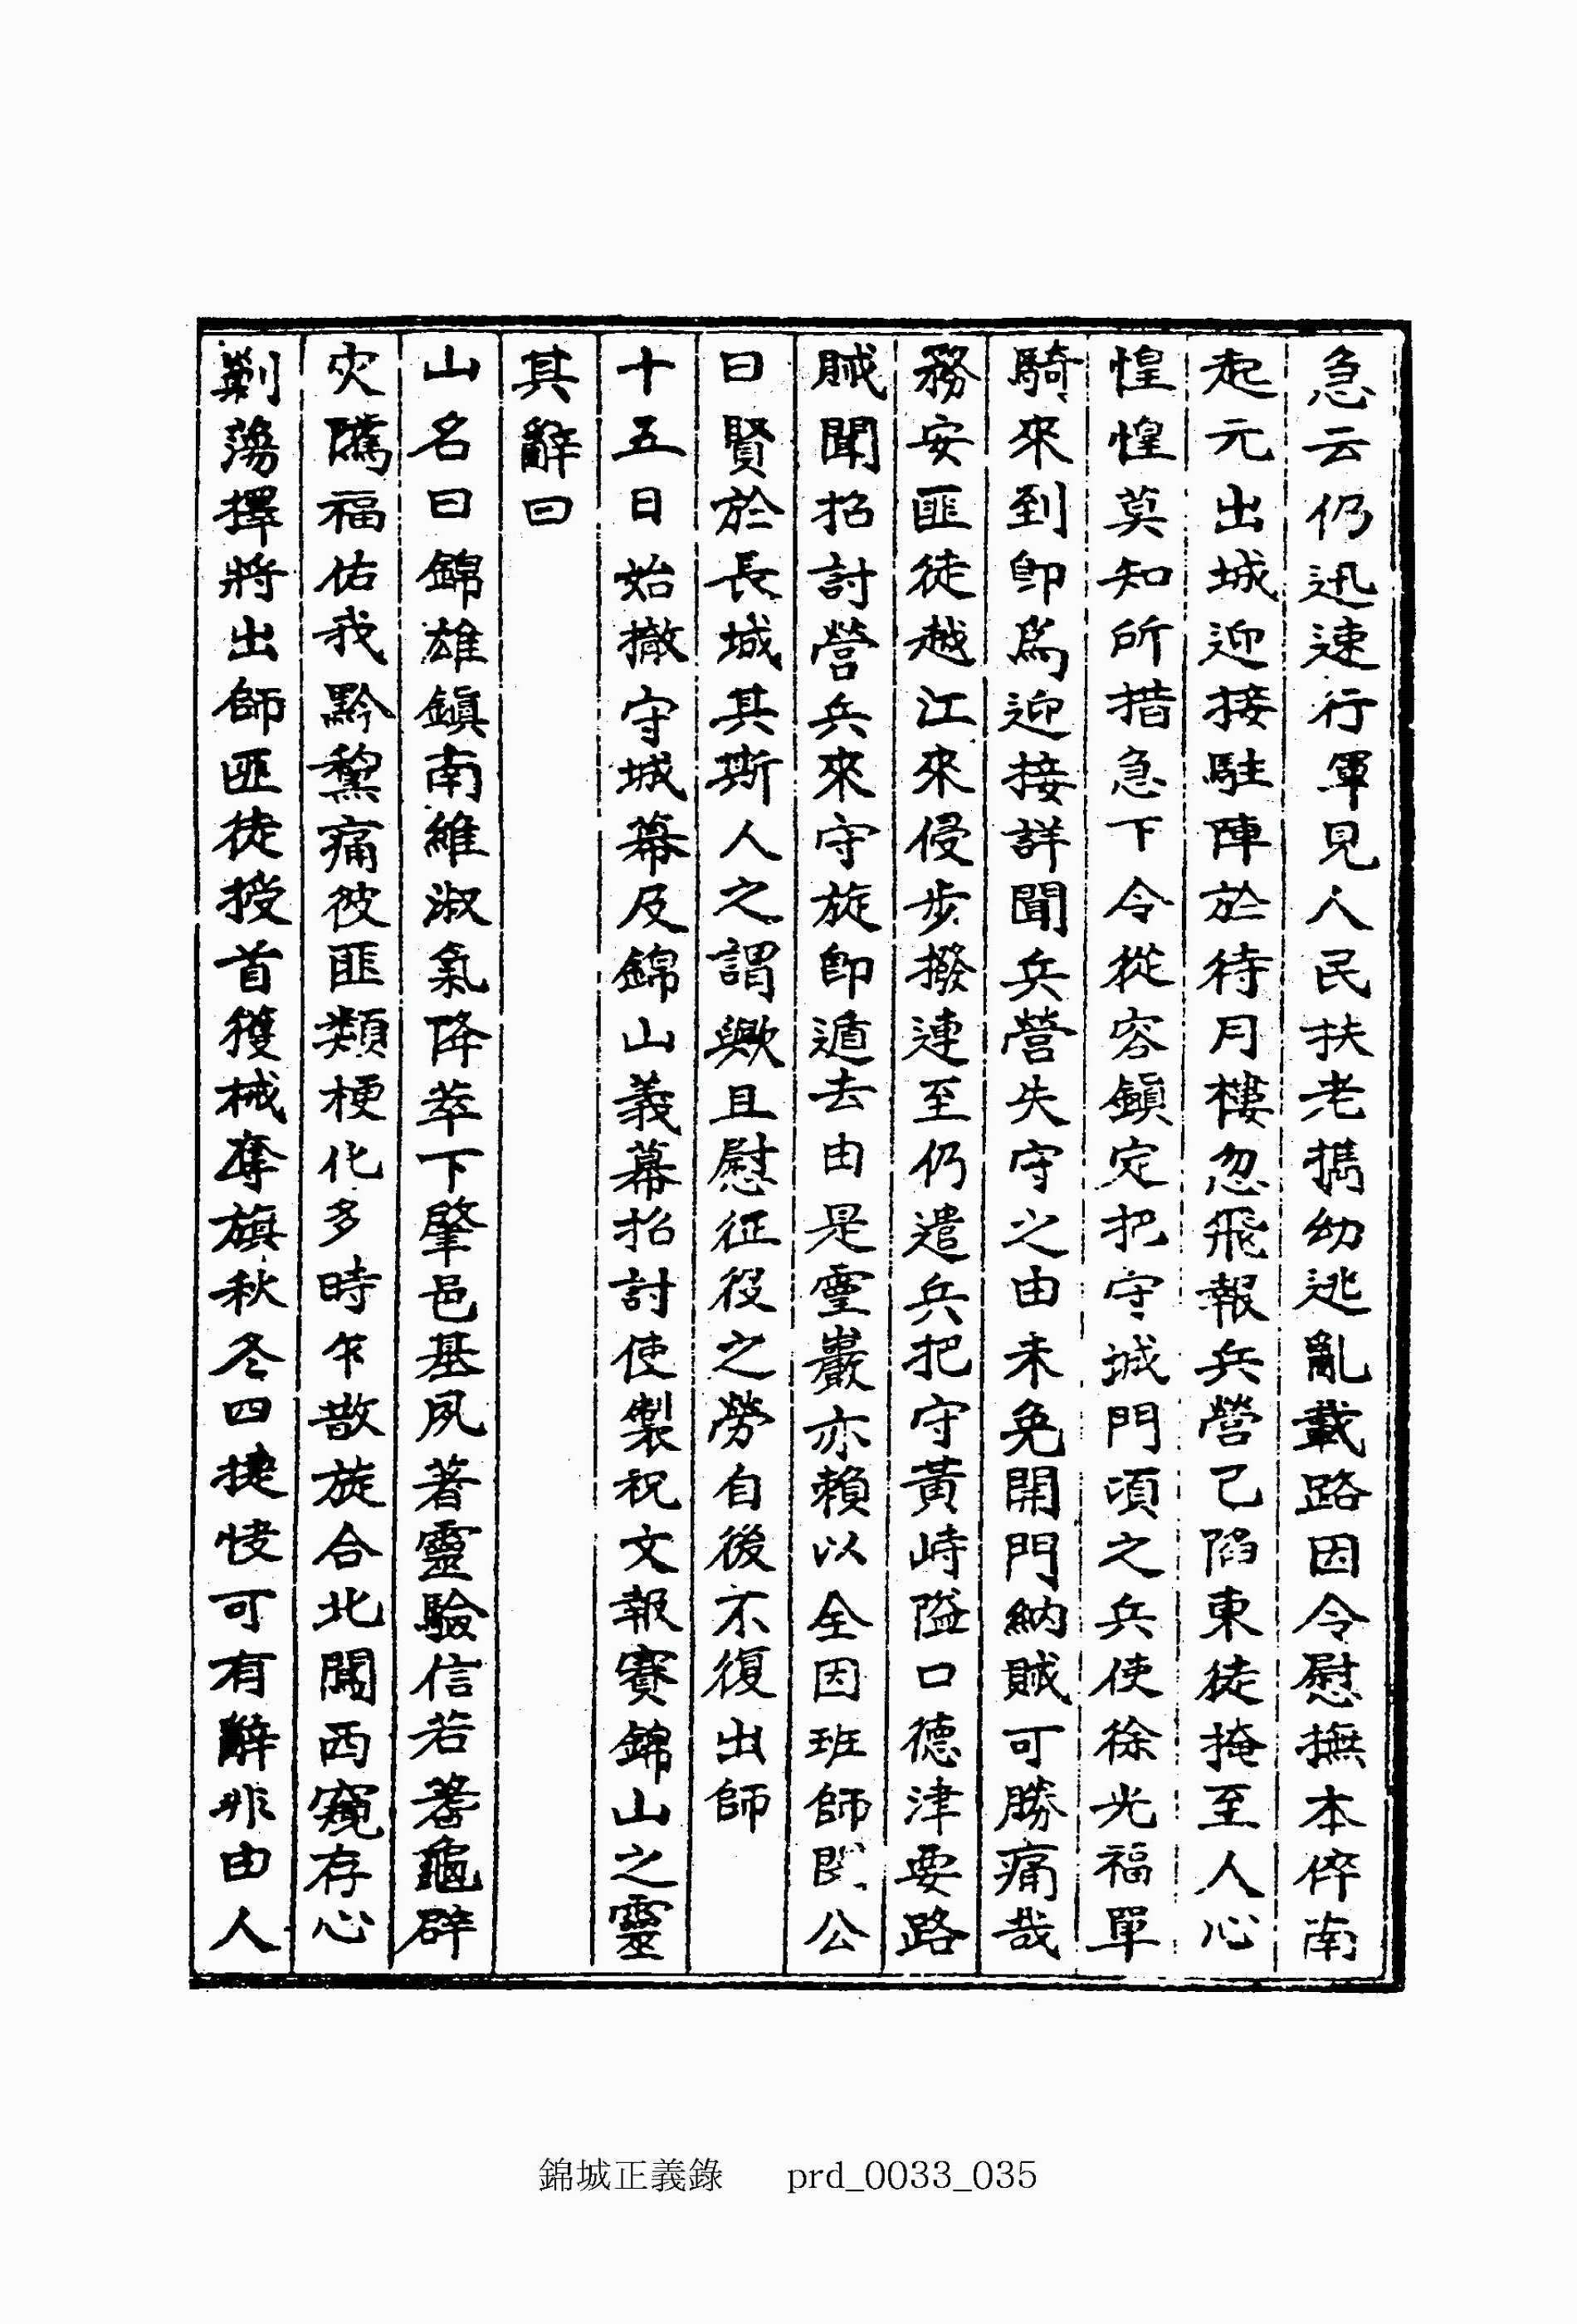 急云仍迅速行軍見人民扶老携幼逃亂載路因令慰撫本倅南
起元出城迎接駐陣於待月樓忽飛報兵營己陷東徒掩至人心
惶惶莫知所措急下令從容鎭定把守城門頃之兵使徐光福單
騎來到卽爲迎接詳聞兵營失守之由未免開門納賊可勝痛哉
務安匪徒越江來侵步撥連至仍遣兵把守黃峙隘口德津要路
賊聞招討營兵來守旋卽遁去由是靈巖亦賴以全因班師閔公
曰賢於長城其斯人之謂歟且慰征役之勞自後不復出師
十五日始撤守城幕及錦山義幕招討使製祝文報賽錦山之靈
其辭曰
山名曰錦雄鎭南維淑氣降萃下肇邑基夙著靈驗信若蓍龜辟
灾隲福佑我黔黎痛彼匪類梗化多時乍散旋合北闖西窺存心
剿蕩擇將出師匪徒授首獲械奪旗秋冬四捷恔可有辭非由人
錦城正義錄 prd_0033_035